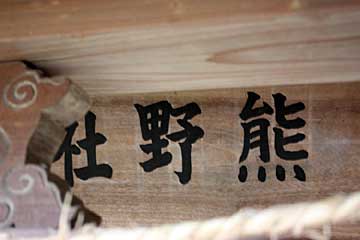 熊野社